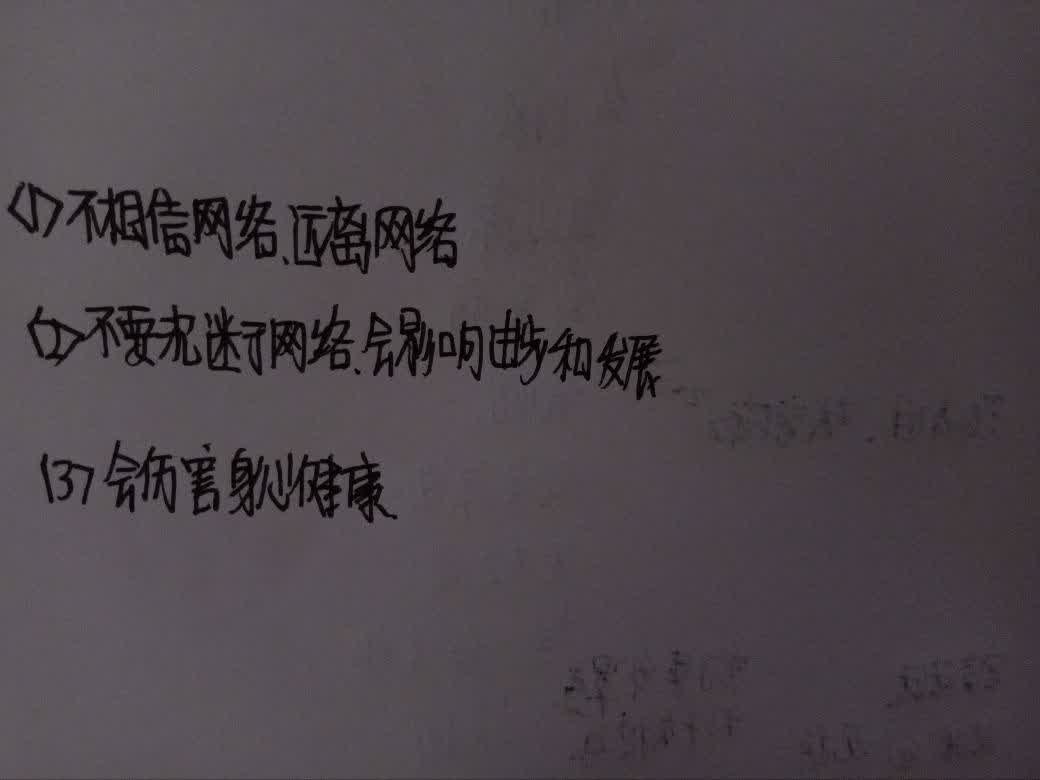 (1)不相信网络、远离网络
(2)不要沉迷于网络.会影响进步和发展
(3)会伤害身心健康.